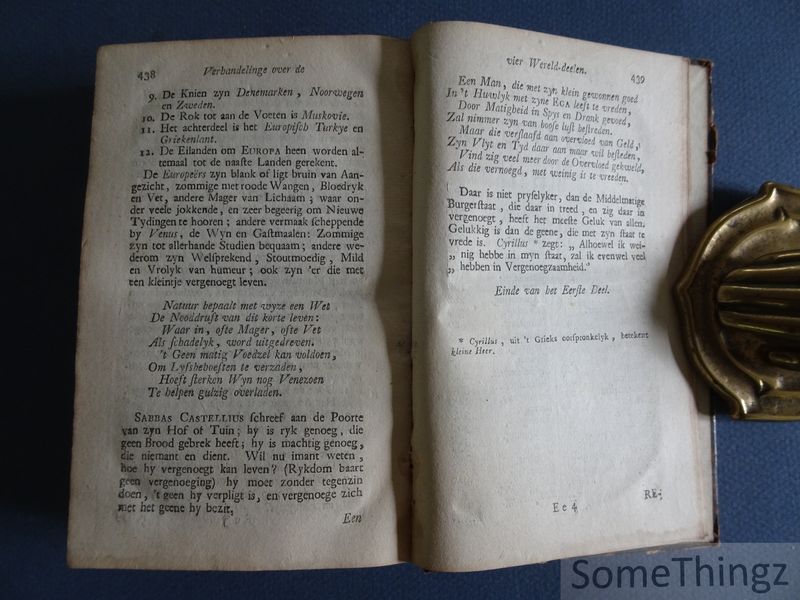 438 Verhandelinge over de
9. De Knien zyn Denemarken, Noorwegen
en Zweden.
10. De Rok tot aan de Voeten is Muskovie.
11. Het achterdeel is het Europisch Turkye en
Griekenlant.
12. De Eilanden om EUROPA heen worden al-
temaal tot de naaste Landen gerekent.
De Europeërs zyn blank of ligt bruin van Aan-
gezicht, zommige met roode Wangen, Bloedryk
en Vet, andere Mager van Lichaam; waar on-
der veele jokkende, en zeer begeerig om Nieuwe
Tydingen te hooren; andere vermaak scheppende
by Venus, de Wyn en Gastmaalen: Zommige
zyn tot allerhande Studien bequaam; andere we-
derom zyn Welsprekend, Stoutmoedig, Mild
en Vrolyk van humeur; ook zyn 'er die met
een kleintje vergenoegt leven.
Natuur bepaalt met wyze een Wet
De Nooddruft van dit korte leven:
Waar in, ofte Mager, ofte Vet
Als schadelyk, word uitgedreven.
't Geen matig Voedzel kan voldoen,
Om Lyfsbehoeften te verzaden,
Hoeft sterken Wyn nog Venezoen
Te helpen gulzig overladen.
SABBAS CASTELLIUS schreef aan de Poorte
van zyn Hof of Tuin; hy is ryk genoeg, die
geen Brood gebrek heeft; hy is machtig genoeg,
die niemant en dient. Wil nu imant weten,
hoe hy vergenoegt kan leven? (Rykdom baart
geen vergenoeging) hy moet zonder tegenzin
doen, 't geen hy verpligt is, en vergenoege zich
met het geene hy bezit,
Een
vier Wereld-deelen. 439
Een Man, die met zyn klein gewonnen goed
In 't Huwlyk met zyne EGA leeft te vreden,
Door Matigheid in Spys en Drank gevoed,
Zal nimmer zyn van boose lust bestreden.
Maar die verslaafd aan overvloed van Geld,
Zyn Vlyt en Tyd daar aan maar wil besteden,
Vind zig veel meer door de Overvloed gekweld,
Als die vernoegd, met weinig is te vreeden.
Daar is niet pryselyker, dan de Middelmatige
Burgerstaat, die daar in treed, en zig daar in
vergenoegt, heeft het meeste Geluk van allen.
Gelukkig is dan de geene, die met zyn staat te
vrede is. Cyrillus * zegt: „ Alhoewel ik wei-
„ nig hebbe in myn staat, zal ik evenwel veel
„ hebben in Vergenoegzaamheid.”
Einde van het Eerste Deel.
* Cyrillus, uit 't Grieks oorspronkelyk, betekent
kleine Heer.
Ee 4 RE-
SomeThingz